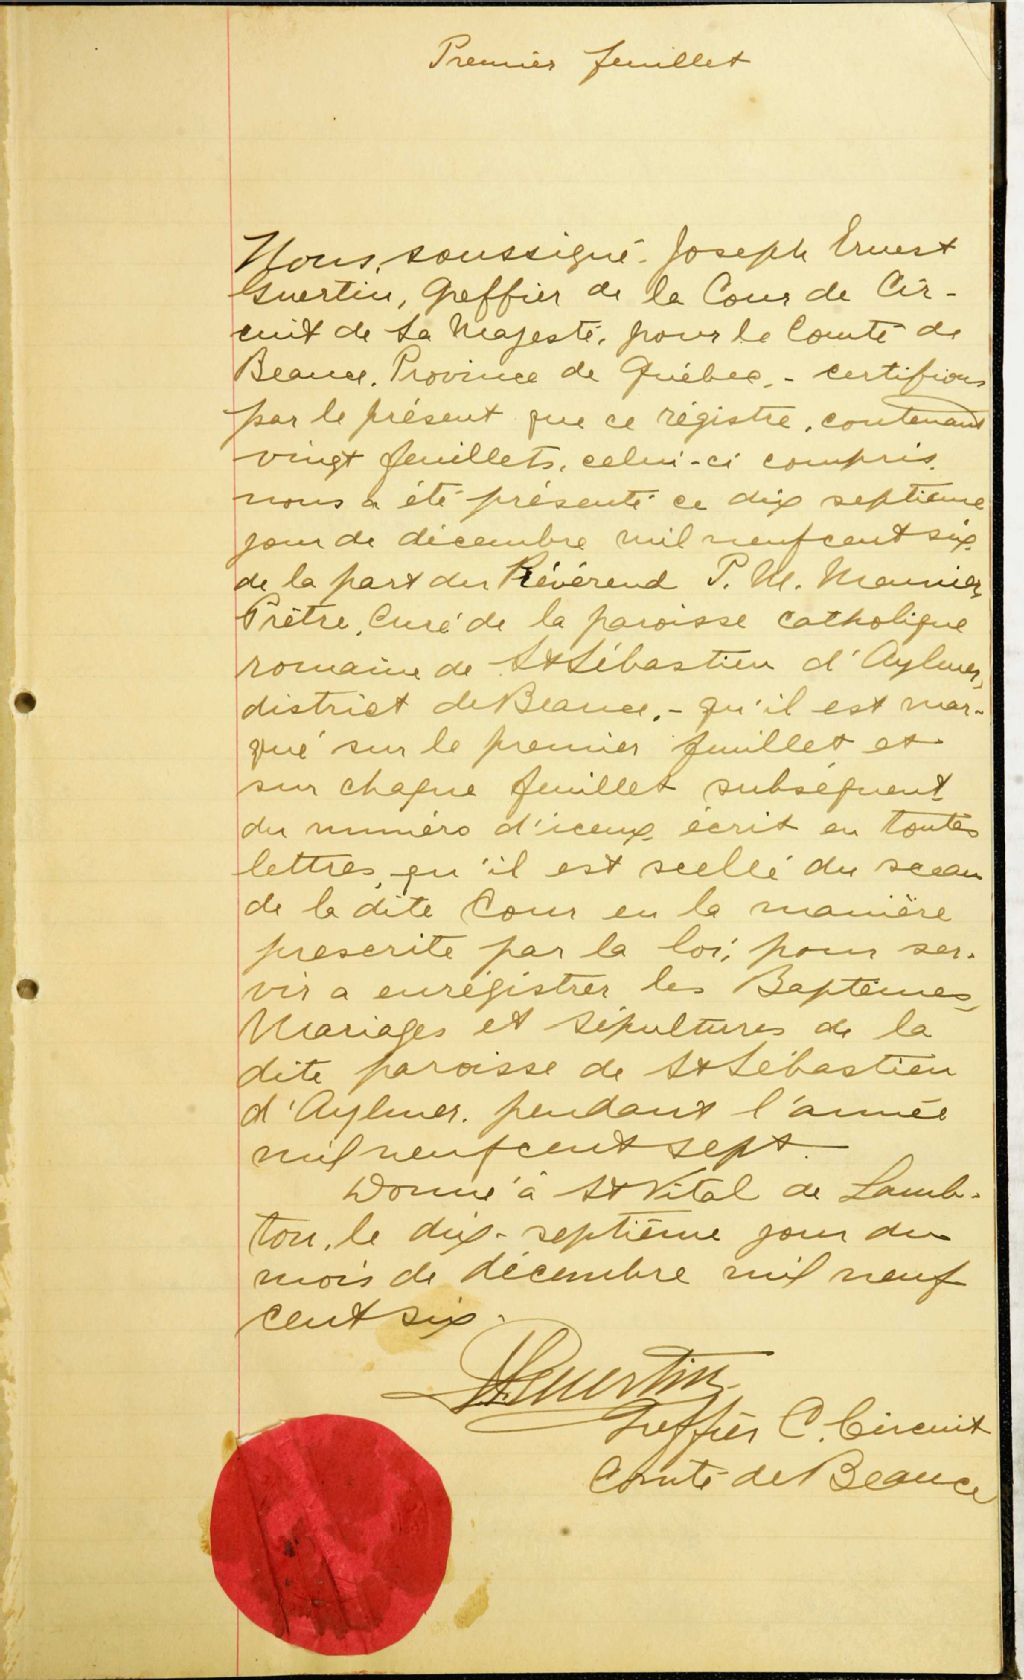 Premier feuillet
Nous, soussigné. Joseph Ernest
Guertin, Greffier de la Cour de Cir-
cuit de Sa Majesté, pour le Comté de
Beauce, Province de Québec, - certifions
par le présent que ce régistre, contenant
vingt feuillets, celui-ci compris,
nous a été présenté ce dix septième
jour de décembre mil neuf cent six,
de la part du Révérend P. M. Meunier,
Prêtre, Curé de la paroisse catholique
romaine de St Sébastien d'Aylmer,
district de Beauce, - qu'il est mar-
qué sur le premier feuillet et
sur chaque feuillet subséquent
du numéro d'iceux, écrit en toutes
lettres, qu'il est scellé du sceau
de la dite Cour en la manière
prescrite par la loi; pour ser-
vir a enrégistrer les Baptêmes,
Mariages et Sépultures de la
dite paroisse de St Sébastien
d'Aylmer. pendant l'année
mil neuf cent sept.
Donné à St Vital de Lamb-
ton, le dix-septième jour du
mois de décembre mil neuf
cent six.
Guertin
Greffier C. Circuit
Comté de Beauce